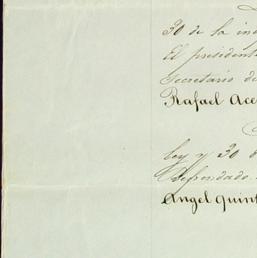 30 de la ind
El president
Secretario de
Rafael Ace
Ley y 30 d
Refrendado
Angel Quint